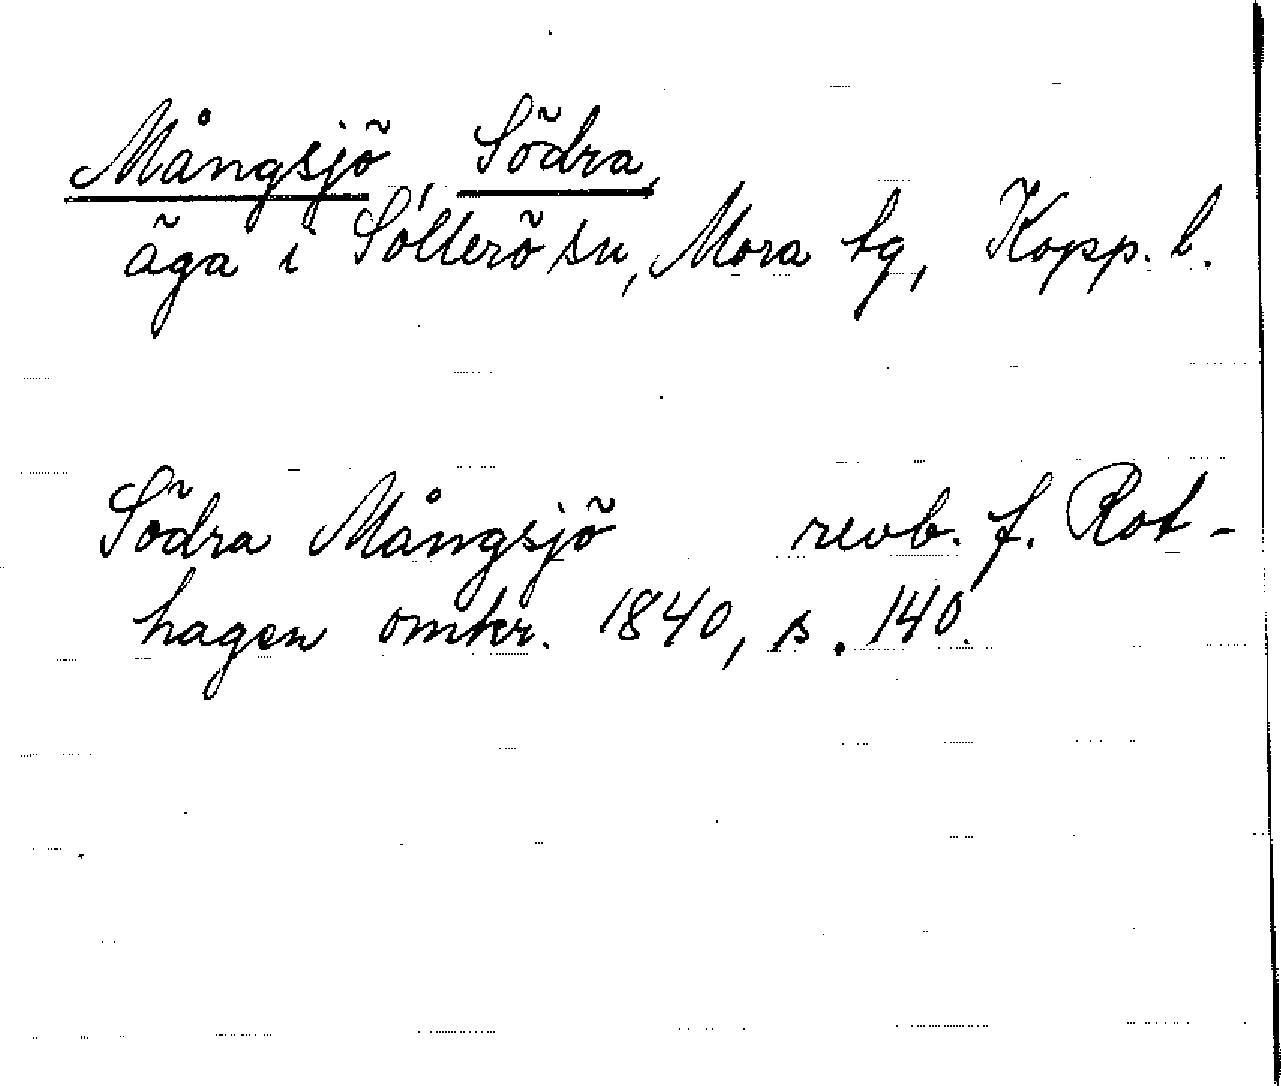 Mångsjö, Södra,
äga i Sollerö sn, Mora tg, Kopp. l.
Södra Mångsjö revb. f. Rot-
hagen omkr. 1840, s. 140.